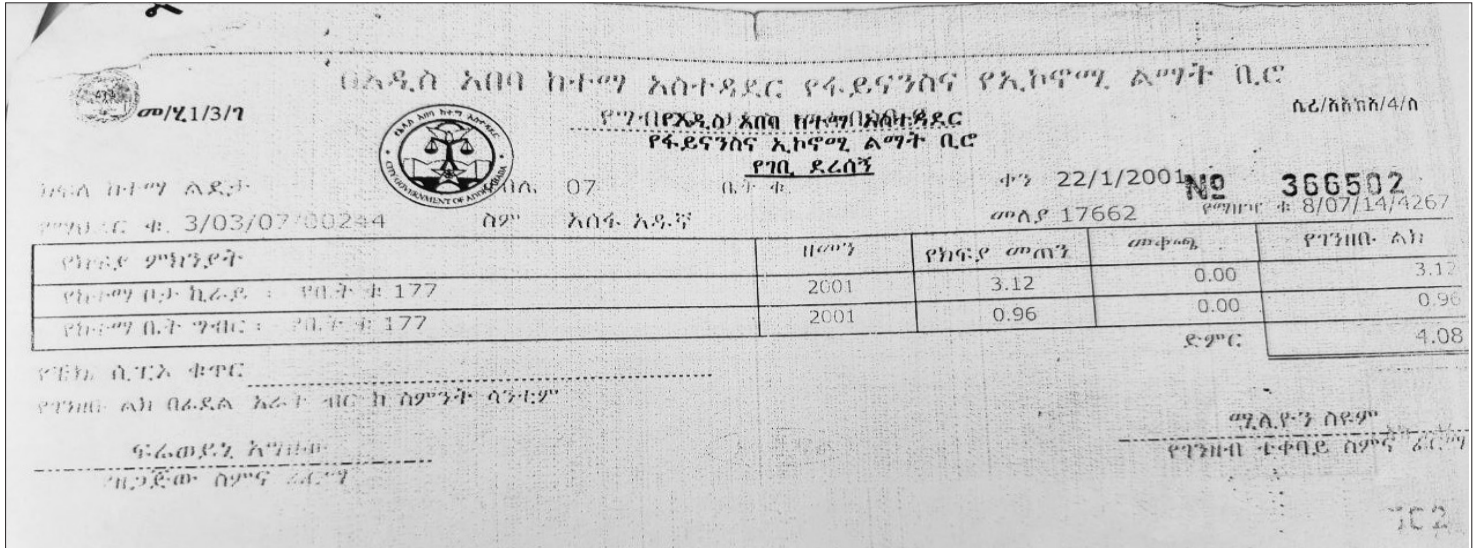 በአዲስ አበባ ከተማ አስተዳደር የፋይናንስና የኢኮኖሚ ልማት ቢሮ
መ/ሂ1/3/ገ
ሴሪ/አአከአ/4/ሰ
የአዲስ አበባ ከተማ አስተዳደር
የፋይናንስና ኢኮኖሚ ልማት ቢሮ
የገቢ ደረሰኝ
CITY GOVERNMENT OF ADDIS ABABA
ክፍለ ከተማ ልደታ ቀበሌ 07 ቤት ቁ. ቀን 22/1/2001 № 366502
የማህደር ቁ. 3/03/07/00244 ስም አሰፋ አዱኛ መለያ 17662 የማዘዣ ቁ 8/07/14/4267
የክፍያ ምክንያት ዘመን የክፍያ መጠን መቀጫ የገንዘቡ ልክ
የከተማ ቦታ ኪራይ : የቤት ቁ 177 2001 3.12 0.00 3.12
የከተማ ቤት ግብር : የቤት ቁ 177 2001 0.96 0.00 0.96
ድምር 4.08
የቼክ/ ሲፒኦ ቁጥር
የገንዘቡ ልክ በፊደል አራት ብር ከ ስምንት ሳንቲም
ሚሊዮን ስዩም
የገንዘብ ተቀባይ ስምና ፊርማ
ፍሬወይኒ
የአዘጋጀው ስምና ፊርማ